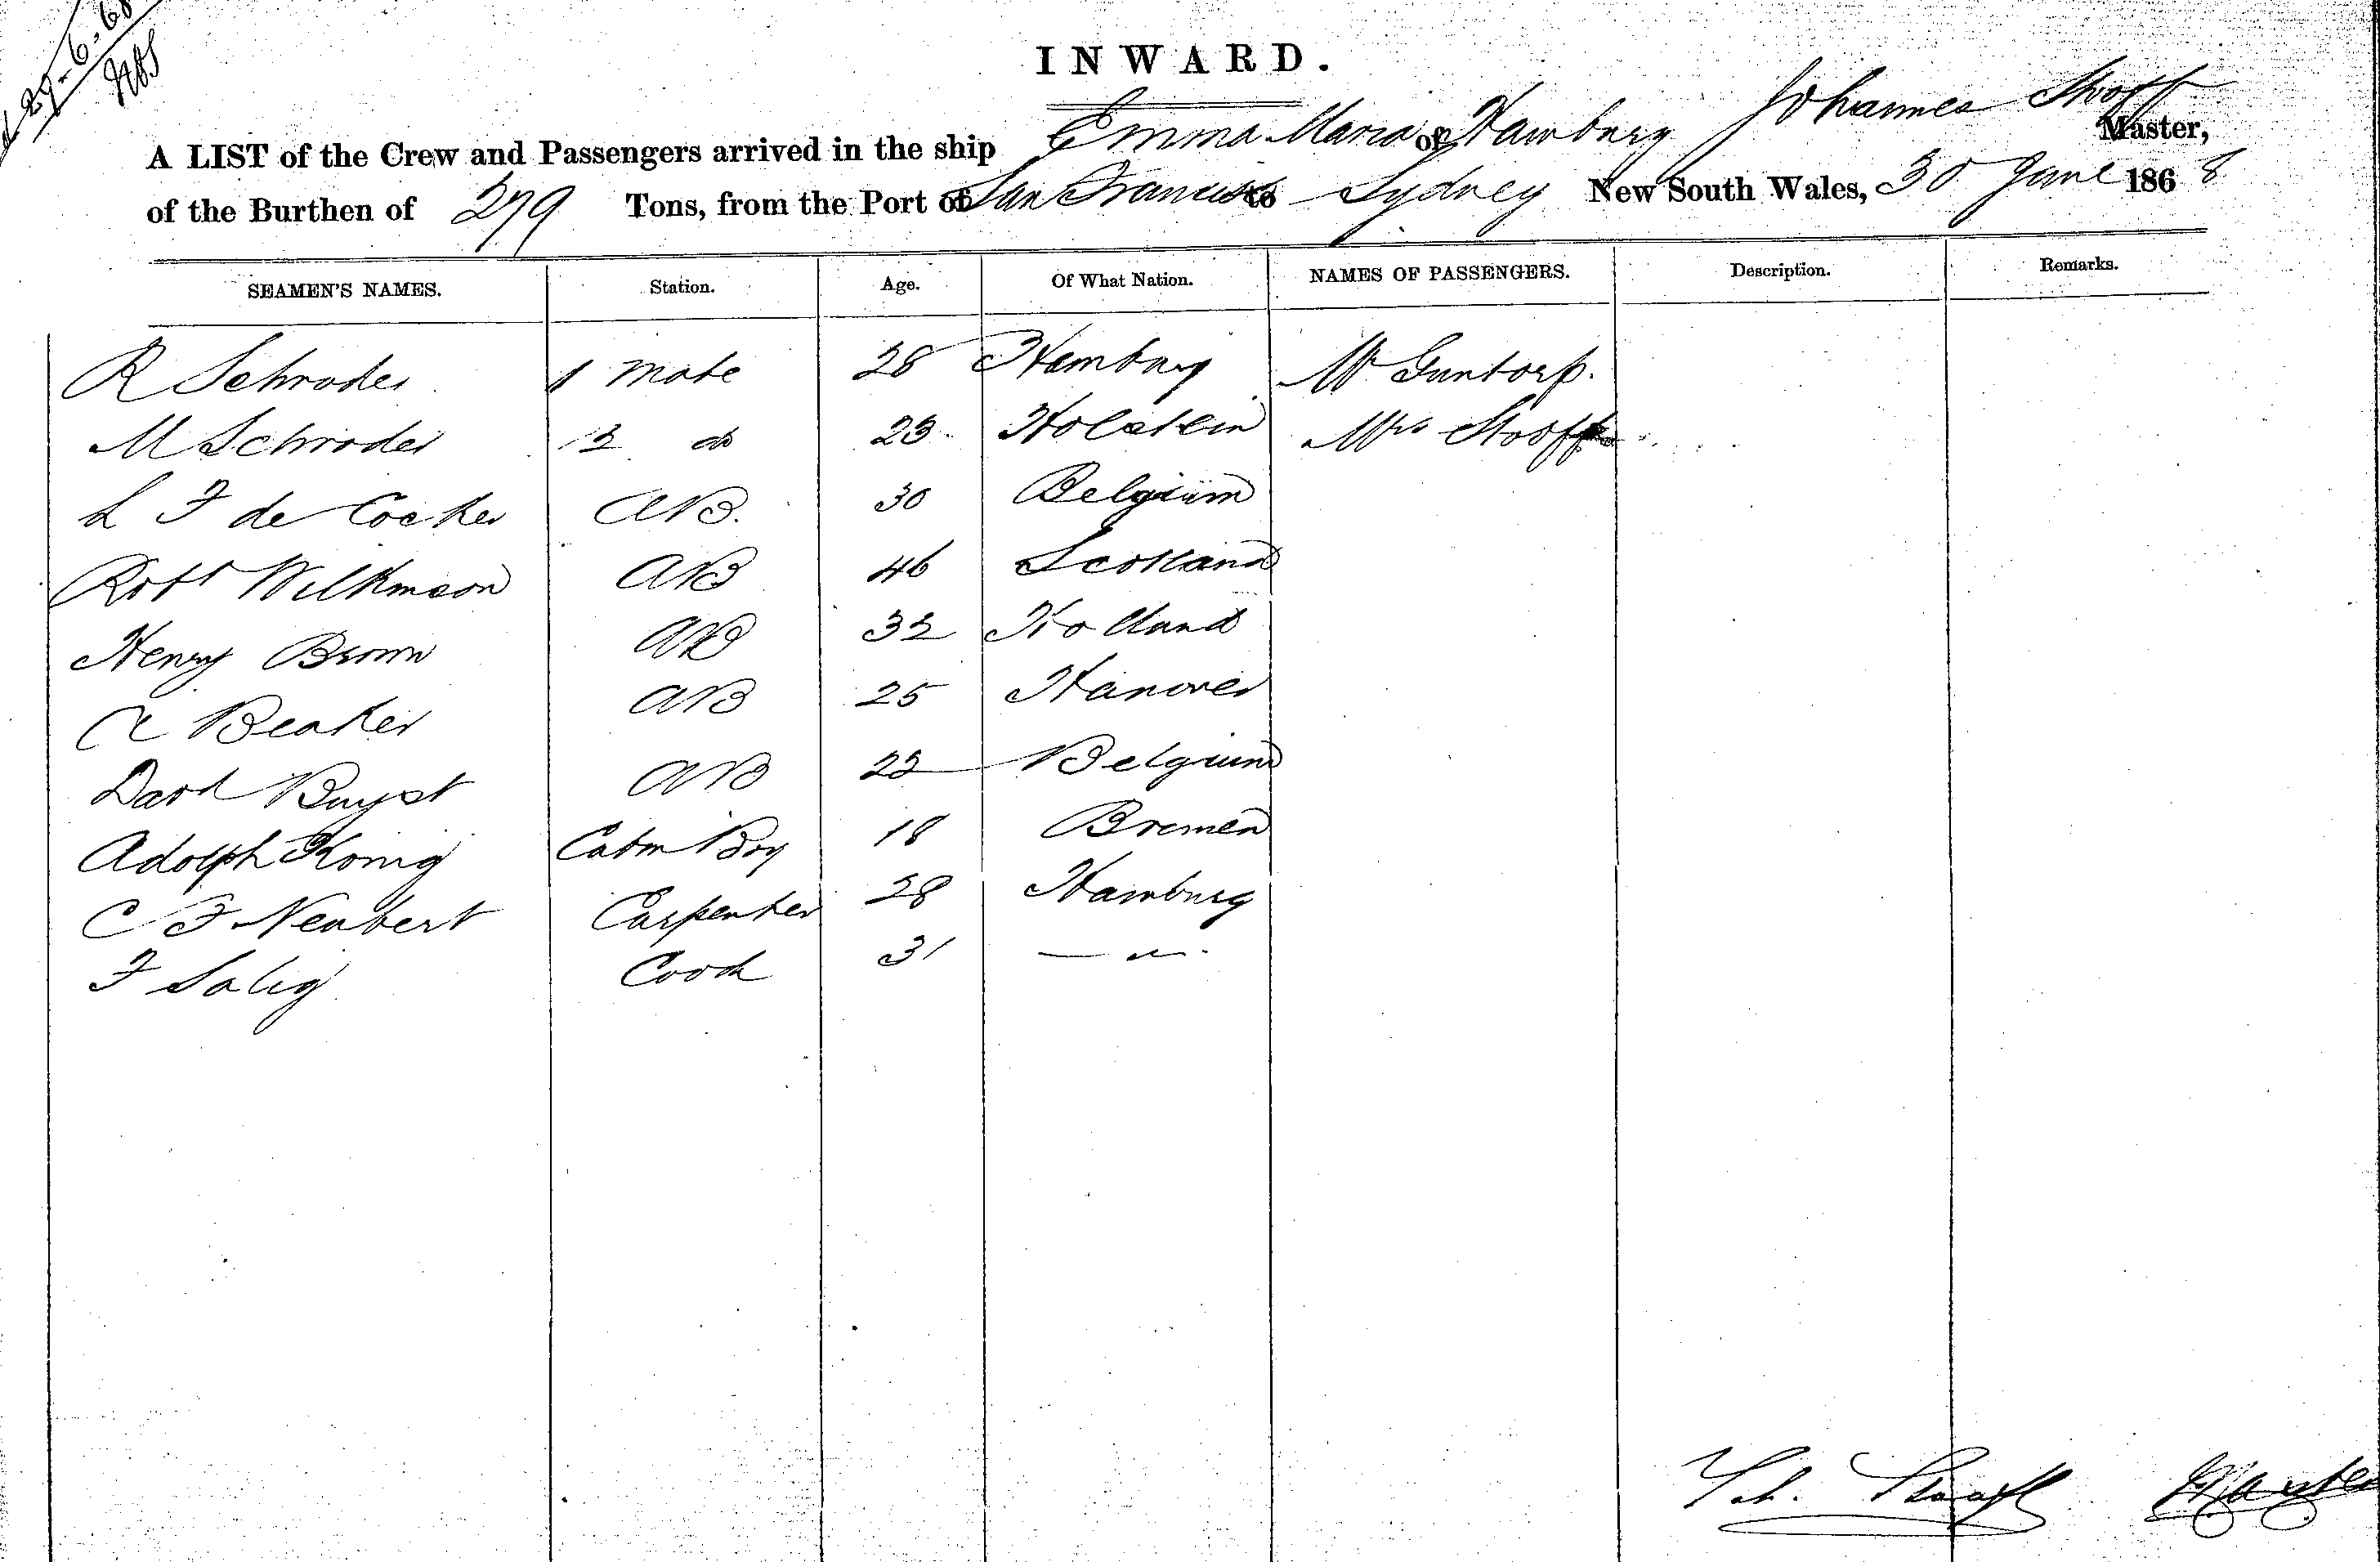 29-6-68
INWARD.
A LIST of the Crew and Passengers arrived in the ship Emma Maria of Hamburg Johannes Stooff Master,
of the Burthen of 279 Tons, from the Port of San Francisco to Sydney New South Wales, 30 June 1868
SEAMEN'S NAMES. Station. Age. Of What Nation. NAMES OF PASSENGERS. Description. Remarks.
R Schroder 1 Mate 28 Hamburg Mr Guntorp.
M Schroder 2 do 23 Holstein Mrs Stooff
L F de Cocker AB. 30 Belgium
Robt Wilkinson AB 46 Scotland
Henry Brown AB 32 Holland
A Beaker AB 25 Hanover
Davd Buyst AB 22 Belgium
Adolph Konig Cabin Boy 18 Bremen
C F Neubert Carpenter 28 Hamburg
F Salig Cook 31 — " -
Joh. Stooff Master